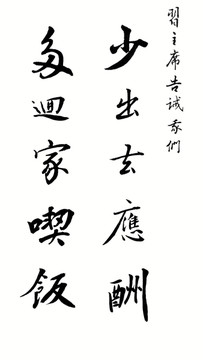 習主席告诫我們
少出去應酬
多迴家喫飯